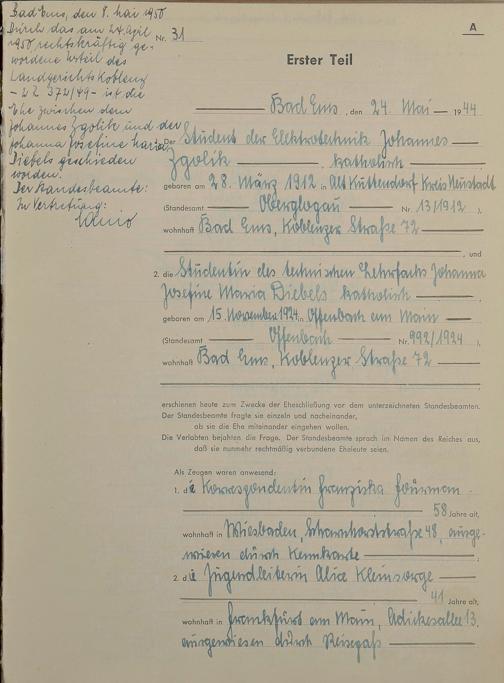 Bad Ems, den 8. Mai 1950
Durch das am 24. April
1950 rechtskräftig ge-
wordene Urteil des
Landgerichts Koblenz
- 2 R 372/49 - ist die
Ehe zwischen dem
Johannes Zgolik und der
Johanna Josefine Maria
Diebels geschieden
worden.
Der Standesbeamte:
In Vertretung:
A
Nr. 31
Erster Teil
Bad Ems, den 24. Mai 1944
Der Student der Elektrotechnik Johannes
Zgolik, katholisch
geboren am 28. März 1912 in Alt Kuttendorf Kreis Neustadt
(Standesamt Oberglogau Nr. 13/1912),
wohnhaft Bad Ems, Koblenzer Straße 72
, und
2. die Studentin des technischen Lehrfachs Johanna
Josefine Maria Diebels katholisch
geboren am 15. November 1924 in Offenbach am Main
(Standesamt Offenbach Nr. 992/1924),
wohnhaft Bad Ems, Koblenzer Straße 72
erschienen heute zum Zwecke der Eheschließung vor dem unterzeichneten Standesbeamten.
Der Standesbeamte fragte sie einzeln und nacheinander,
ob sie die Ehe miteinander eingehen wollen.
Die Verlobten bejahten die Frage. Der Standesbeamte sprach im Namen des Reiches aus,
daß sie nunmehr rechtmäßig verbundene Eheleute seien.
Als Zeugen waren anwesend:
1. die Korrespondentin Franziska
58 Jahre alt,
wohnhaft in Wiesbaden, Scharnhorststraße 48, ausge-
wiesen durch Kennkarte
2. die Jugendleiterin Alice Kleinsorge
41 Jahre alt,
wohnhaft in Frankfurt am Main, Adickesallee 13.
ausgewiesen durch Reisepaß